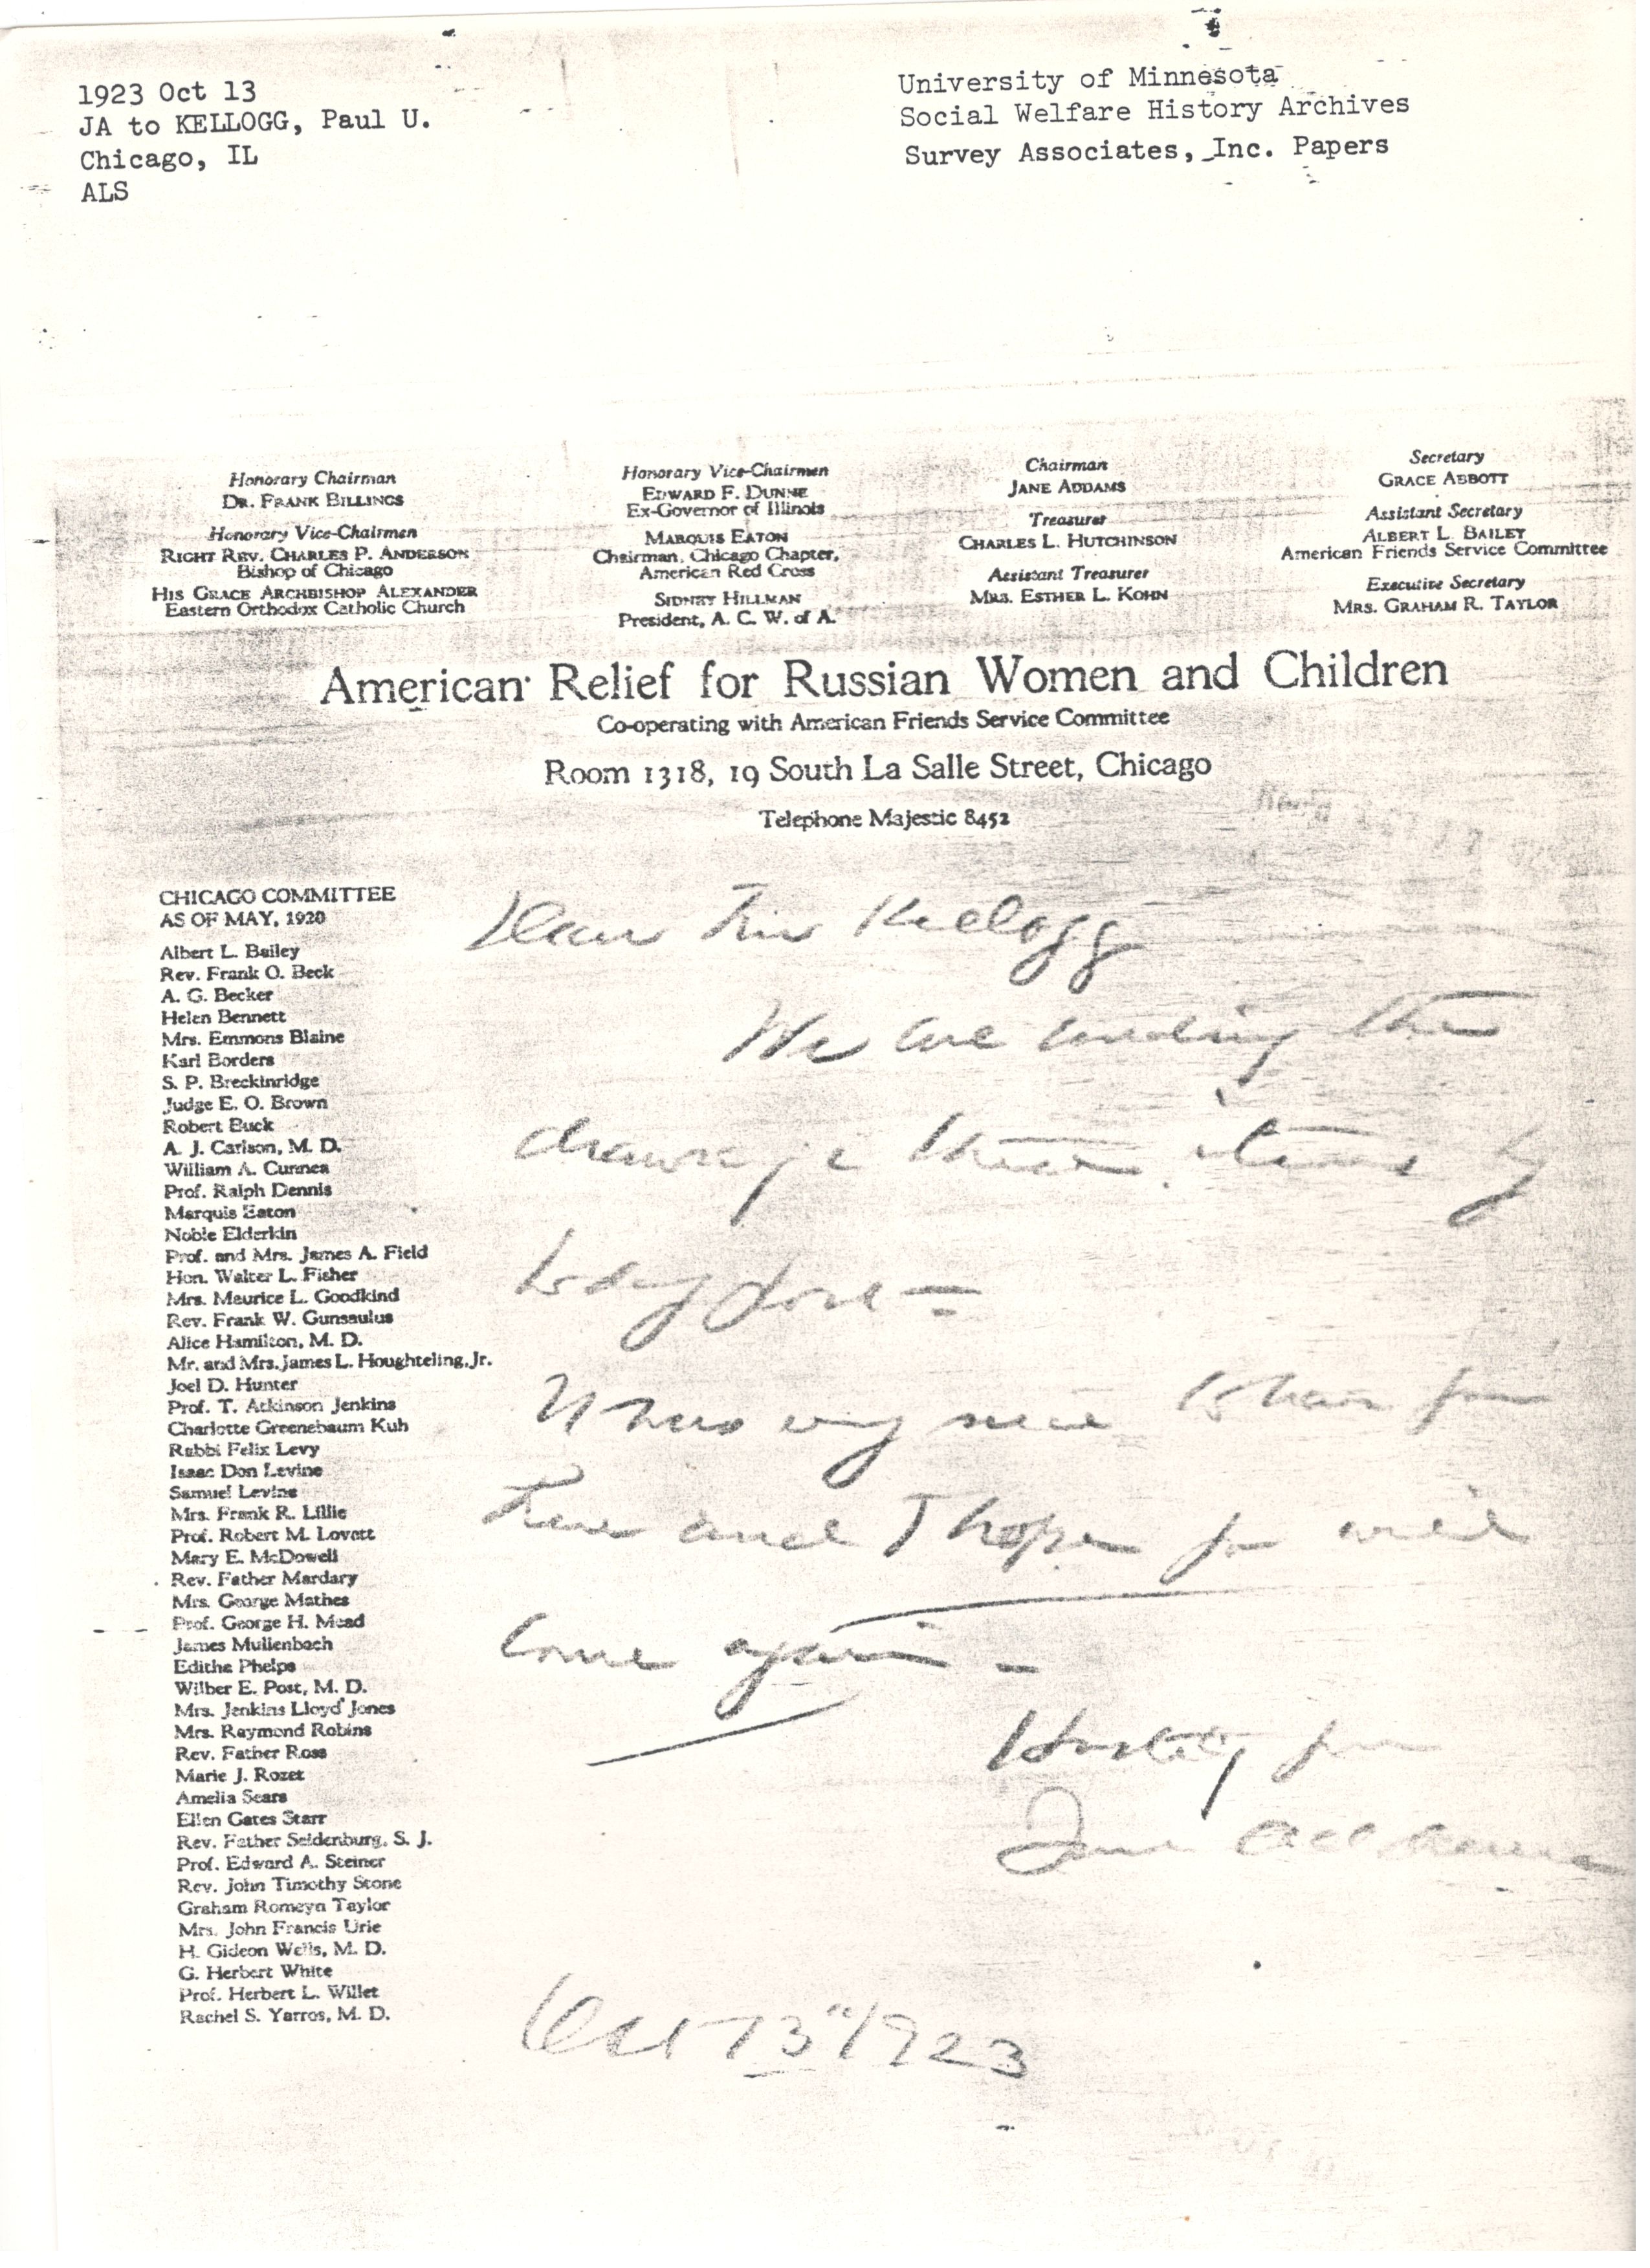 1923 Oct 13
JA to KELLOGG, Paul U.
Chicago, IL
ALS
University of Minnesota
Social Welfare History Archives
Survey Associates, Inc. Papers
Honorary Chairman
DR. FRANK BILLINGS
Honorary Vice-Chairmen
RIGHT REV. CHARLES P. ANDERSON
Bishop of Chicago
HIS GRACE ARCHBISHOP ALEXANDER
Eastern Orthodox Catholic Church
Honorary Vice-Chairmen
EDWARD F. DUNNE
Ex-Governor of Illinois
MARQUIS EATON
Chairman, Chicago Chapter,
American Red Cross
SIDNEY HILLMAN
President, A. C. W. of A.
Chairman
JANE ADDAMS
Treasurer
CHARLES L. HUTCHINSON
Assistant Treasurer
MRS. ESTHER L. KOHN
Secretary
GRACE ABBOTT
Assistant Secretary
ALBERT L. BAILEY
American Friends Service Committee
Executive Secretary
MRS. GRAHAM R. TAYLOR
American Relief for Russian Women and Children
Co-operating with American Friends Service Committee
Room 1318, 19 South La Salle Street, Chicago
Telephone Majestic 8452
CHICAGO COMMITTEE
AS OF MAY, 1920
Albert L. Bailey
Rev. Frank O. Beck
A. G. Becker
Helen Bennett
Mrs. Emmons Blaine
Karl Borders
S. P. Breckinridge
Judge E. O. Brown
Robert Buck
A. J. Carlson, M. D.
William A. Cunnea
Prof. Ralph Dennis
Marquis Eaton
Noble Elderkin
Prof. and Mrs. James A. Field
Hon. Walter L. Fisher
Mrs. Maurice L. Goodkind
Rev. Frank W. Gunsaulus
Alice Hamilton, M. D.
Mr. and Mrs. James L. Houghteling, Jr.
Joel D. Hunter
Prof. T. Atkinson Jenkins
Charlotte Greenebaum Kuh
Rabbi Felix Levy
Isaac Don Levine
Samuel Levine
Mrs. Frank R. Lillie
Prof. Robert M. Lovett
Mary E. McDowell
Rev. Father Mardary
Mrs. George Mathes
Prof. George H. Mead
James Mullenbach
Editha Phelps
Wilber E. Post, M. D.
Mrs. Jenkins Lloyd Jones
Mrs. Raymond Robins
Rev. Father Ross
Marie J. Rozet
Amelia Sears
Ellen Gates Starr
Rev. Father Seidenburg, S. J.
Prof. Edward A. Steiner
Rev. John Timothy Stone
Graham Romeyn Taylor
Mrs. John Francis Urie
H. Gideon Wells, M. D.
G. Herbert White
Prof. Herbert L. Willet
Rachel S. Yarros, M. D.
Dear Mr Kellogg
We are sending the
by
today's
It was very nice to have you
here and I hope you will
come again -
Heartily yours
Jane Addams
Oct 13" 1923